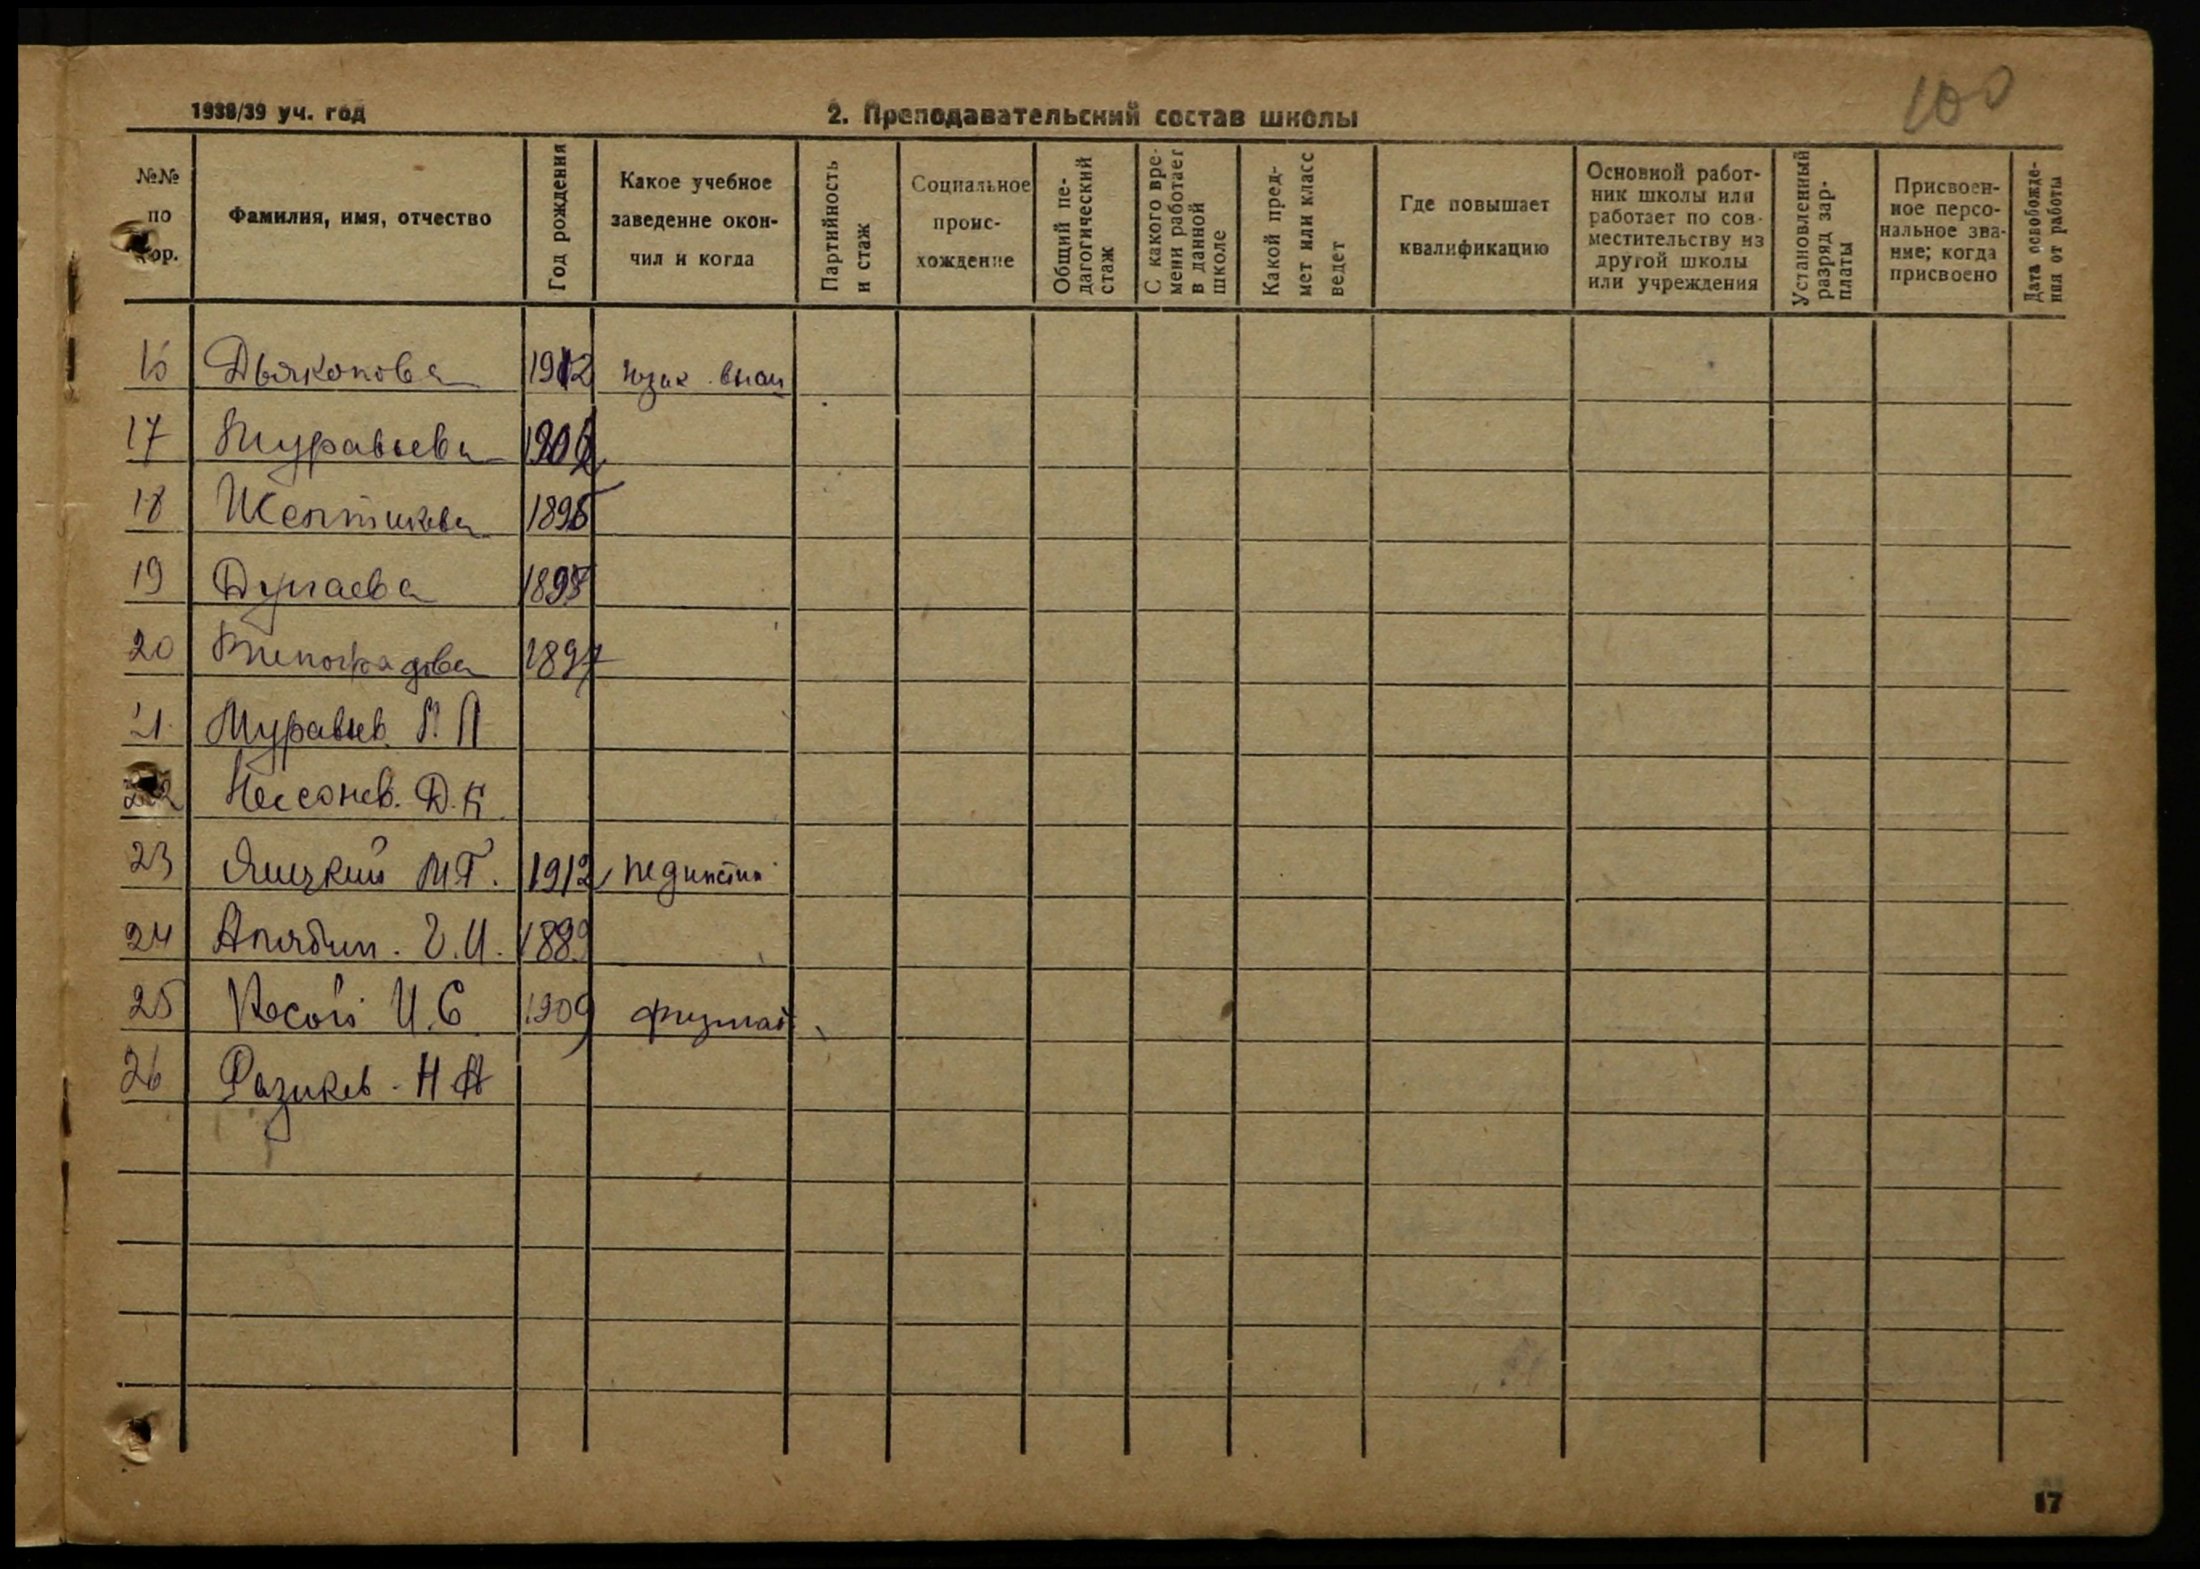 100
1938/39 уч. год
2. Преподавательский состав школы
№№ по пор.
Фамилия, имя, отчество
Год рождения
Какое учебное заведение окончил и когда
Партийность и стаж
Социальное происхождение
Общий педагогический стаж
С какого времени работает в данной школе
Какой предмет или класс ведет
Где повышает квалификацию
Основной работник школы или работает по совместительству из другой школы или учреждения
Установленный разряд зарплаты
Присвоенное персональное звание; когда присвоено
Дата освобождения от работы
16 Дьяконова 1912
17 Журавьева
18 1895
19 1895
20 Виноградова 1897
21 Муравьев П. П
22 Нессонов. Д. К
23 Яицкий М Г. 1912 пединстит
24 1889
25 Косой И. С 1909 физмат
26 Разиков - Н А
17